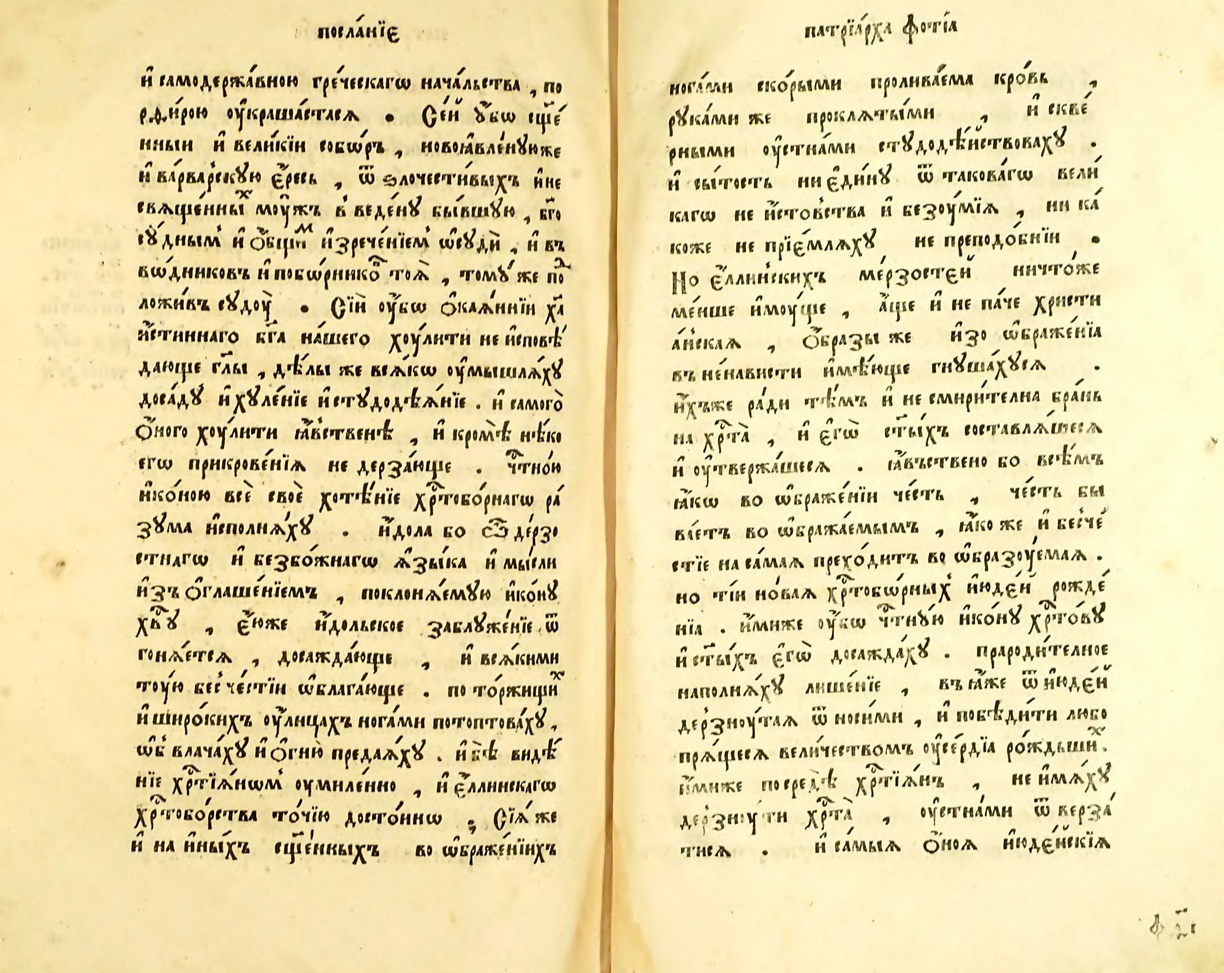 посла́нїе
и҆ самодержа́вною гре́ческагѡ нача́льства , по
рѳи́рою ᲂу҆краша́стася . Се́й ᲂу҆́бѡ сщ҃е́
нныи и҆ вели́кїи собѡ́ръ , новоꙗ҆вле́ннꙋюже
и҆ ва́рварскꙋю є҆́ресь , ѿ ѕлочести́выхъ и҆не
свѧще́нныⷯ моу́жъ в̾веде́нꙋ бы́вшꙋю , бг҃о
сꙋ́дным̾ и҆ ѻ҆́бщиⷨ и҆зрече́нїем̾ ѡ҆сꙋдѝ , и҆ въ
вѡ́дниковъ и҆ побо́рникоⷡ тоѧ̀ , томꙋ́ же поⷣ
ложи́въ сꙋдоу̀ . Сїи́ ᲂу҆́бѡ ѻ҆каѧ́ннїи хⷭ҇а
и҆́стиннаго бг҃а на́шего хоу́лити не и҆сповѣ́
дающе гл҃ы , дѣ́лы же всѧ́кѡ ᲂу҆мышлѧ́хꙋ
доса́дꙋ и҆ хꙋле́нїе и҆ стꙋдодѣѧ́нїе . и҆ самого̀
ѻ҆́ного хоу́лити ꙗ҆́вственѣ , и҆ кро́мѣ нѣ́ко
егѡ прикрове́нїѧ не дерза́юще . чⷭ҇тно́ю
и҆ко́ною всѐ своѐ хотѣ́нїе хрⷭ҇тобо́рнагѡ ра́
зꙋма и҆сполнѧ́хꙋ . и҆́дола бо ѽ де́рзо
стнагѡ и҆ безбо́жнагѡ ѧ҆зы́ка и҆ мы́сли
и҆зъ ѻ҆глаше́нїемъ , поклонѧ́емꙋю и҆ко́нꙋ
хⷭ҇вꙋ , є҆́юже и҆́дольское заблꙋже́нїе ѿ
гонѧ́етсѧ , досажда́юще , и҆ всѧ́кими
тоу́ю бесче́стїи ѡ҆блага́юще . по то́ржищиⷯ
и҆ широ́кихъ ᲂу҆́лицахъ нога́ми потоптова́хꙋ ,
ѡ҆б̾ влача́хꙋ и҆ ѻ҆гню̀ предаѧ́хꙋ . и҆ бѣ̀ видѣ́
нїе хрⷭ҇тїѧ́нѡм̾ ᲂу҆миле́нно , и҆ є҆́ллинскагѡ
хрⷭ҇тобо́рства то́чїю досто́йнѡ ; Сїѧ́ же
и҆ на и҆ны́хъ сщ҃е́нныхъ во ѡ҆браже́нїихъ
патрїа́рха фо́тїа
нога́ми ско́рыми пролива́ема кро́вь ,
рꙋка́ми же проклѧ́тыми , и҆ скве́
рными ᲂу҆стна́ми стꙋдодѣ́йствовахꙋ .
и҆ сы́тость ни є҆ди́нꙋ ѿ такова́гѡ вели́
кагѡ не и҆́стовства и҆ безоу́мїѧ , ни ка́
коже не прїе́млѧхꙋ не преподо́бнїи .
Но є҆́ллинскихъ ме́рзостей ничто́же
ме́нше и҆моу́ще , а҆́ще и҆ не па́че христи
а́нскаѧ , ѻ҆́бразы же и҆зо ѡ҆браже́нїа
въ не́нависти и҆мѣ́юще гнꙋша́хꙋсѧ .
и҆́хъже ра́ди тѣ́мъ и҆ не смири́телна бра́нь
на хрⷭ҇та̀ , и҆ є҆гѡ̀ ст҃ы́хъ составлѧ́шесѧ
и҆ ᲂу҆твержа́шесѧ . ꙗ҆́вьствено бо всѣ́мъ
ꙗ҆́кѡ во ѡ҆браже́нїи че́сть , че́сть бы
ва́етъ во ѡ҆бража́емымъ , ꙗ҆́ко же и҆ бесче́
стїе на са́маѧ прехо́дитъ во ѡ҆бразоу́емаѧ .
но ті́и но́ваѧ хрⷭ҇тобо́рных̾ и҆юде́й рожде́
нїа . и҆́миже ᲂу҆́бѡ чⷭ҇тнꙋ́ю и҆ко́нꙋ хрⷭ҇то́вꙋ
и҆ ст҃ы́хъ є҆гѡ̀ досажда́хꙋ . прароди́телное
наполнѧ́хꙋ лише́нїе , въ ꙗ҆́же ѿ и҆юде́й
дерзноу́таѧ ѿ носи́ми , и҆ побѣди́ти любо
прѧ́щесѧ вели́чествомъ ᲂу҆се́рдїа ро́ждьшиⷯ .
и҆́миже посредѣ̀ хрⷭ҇тїѧ́нъ , не и҆мѧ́хꙋ
дерзноу́ти хрⷭ҇та̀ , ᲂу҆стна́ми ѿ верза́
тисѧ . и҆ самы́ѧ ѻ҆́ноѧ и҆юде́йскїѧ